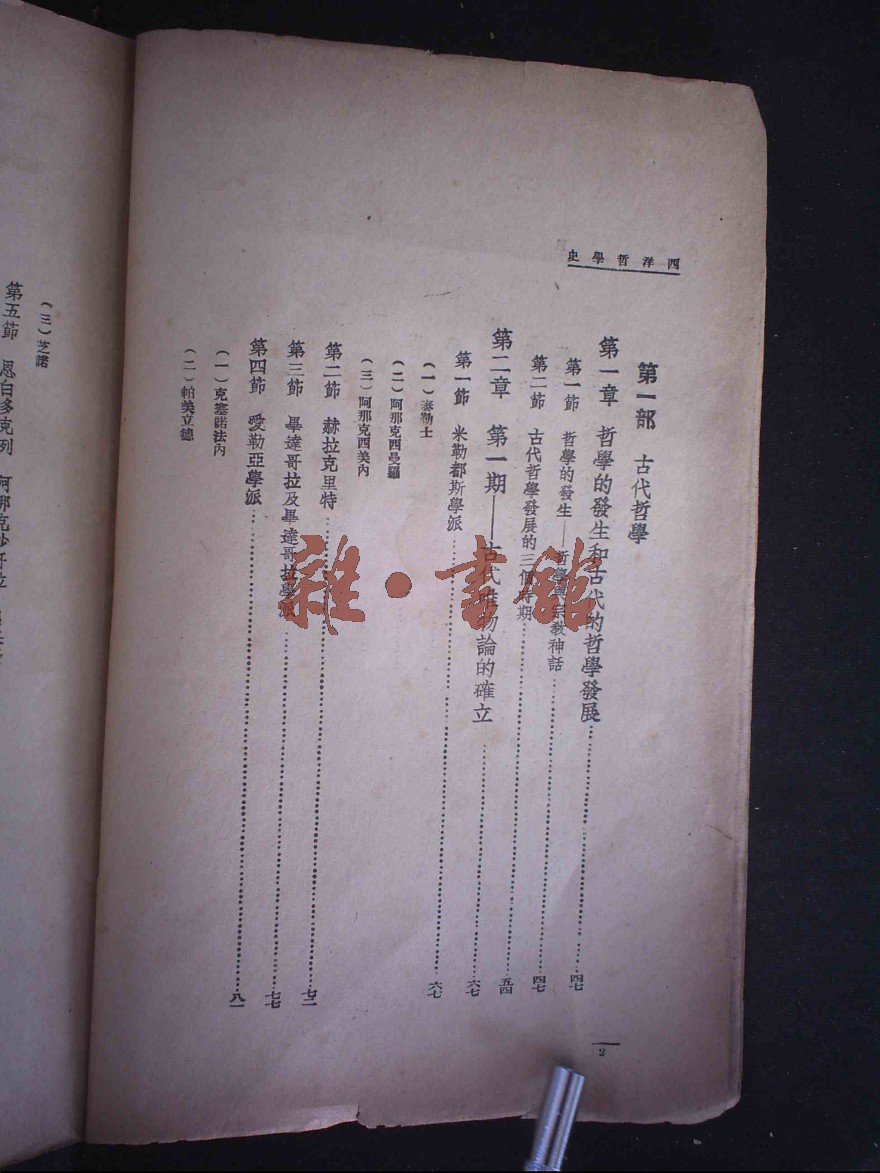 西洋哲學史
第一部　古代哲學
第一章　哲學的發生和古代的哲學發展……四七
第一節　哲學的發生——哲學與宗教神話……四七
第二節　古代哲學發展的三個時期……五四
第二章　第一期——古代唯物論的確立……六七
第一節　米勒都斯學派……六七
（一）泰勒士
（二）阿那克西曼羅
（三）阿那克西美內
第二節　赫拉克里特……七二
第三節　畢達哥拉及畢達哥拉學派……七七
第四節　愛勒亞學派……八一
（一）克塞諾法內
（二）帕美立德
2
（三）芝諾
第五節　恩白多克列
雜·書館